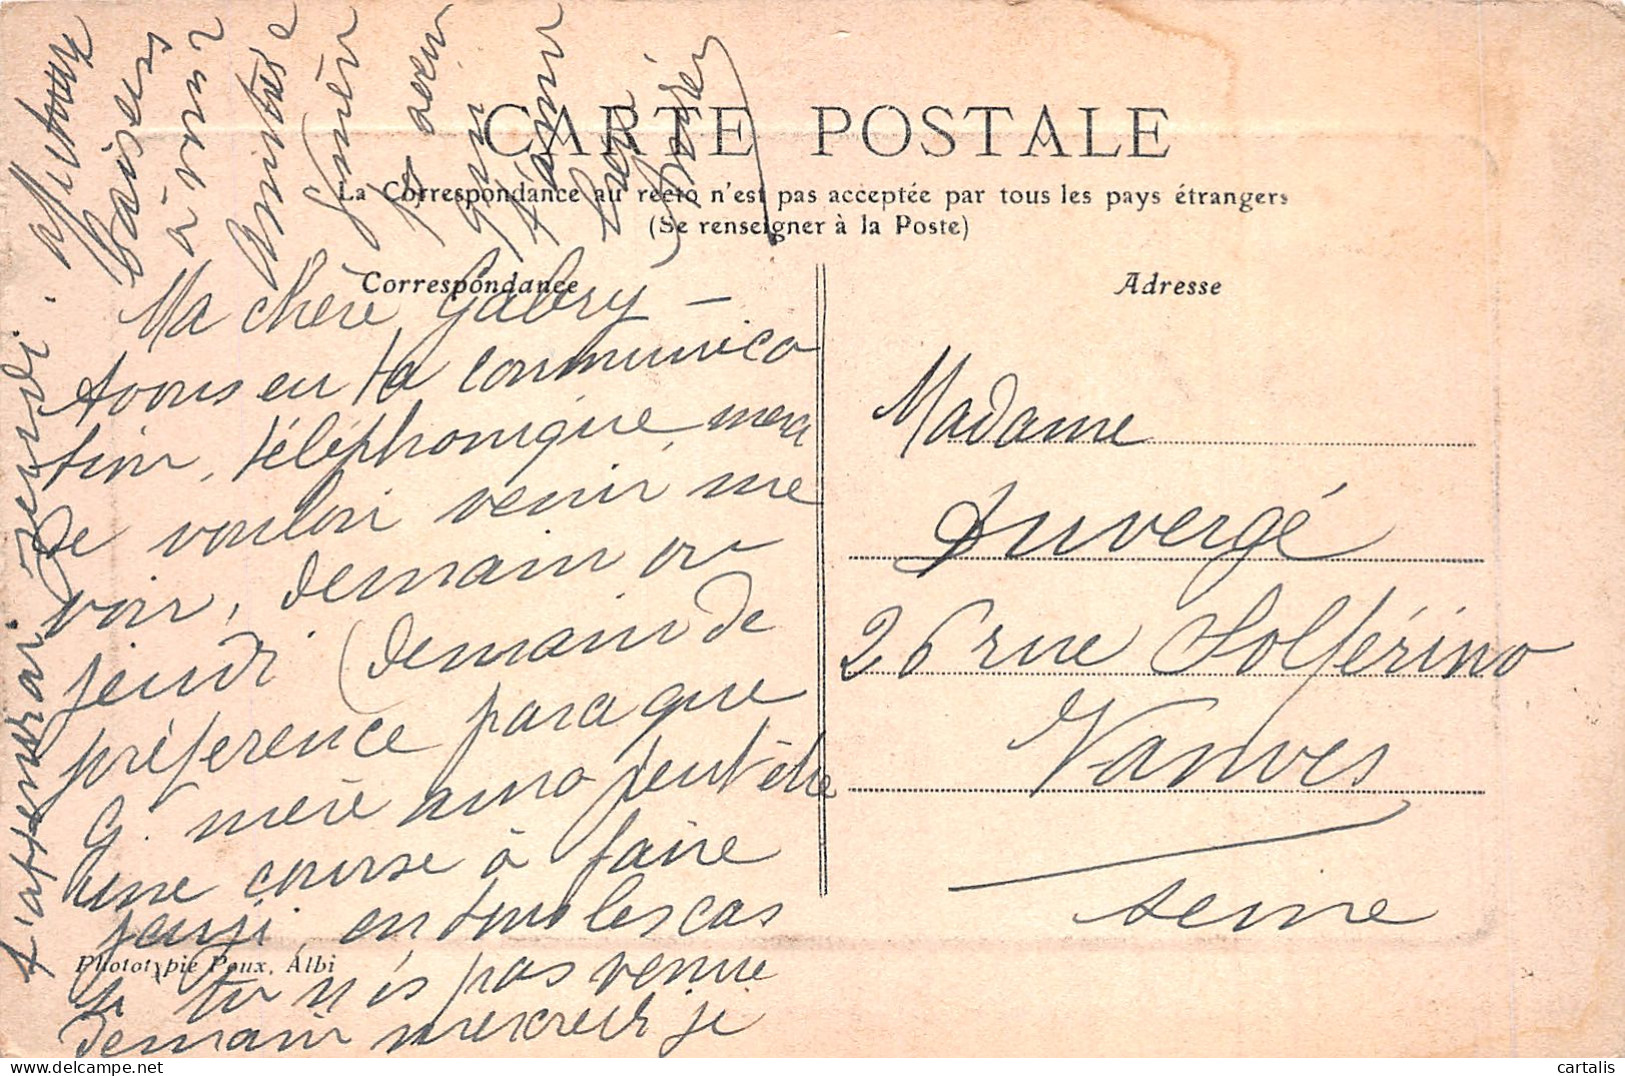 CARTE POSTALE
La Correspondance au recto n'est pas acceptée par tous les pays étrangers
(Se renseigner à la Poste)
Correspondance
Adresse
Ma chère Gabry —
Avons eu ta communica
tion, téléphonique, merci
de vouloir venir me
voir, demain ou
jeudi (demain de
préférence parce que
G. mère aura peut être
une course à faire
jeudi, en tous les cas
si tu n'es pas venue
demain mercredi je
t'attendrai jeudi.
affectueux
baisers
à vous 2
amitiés
Madame
Duvergé
26 rue Solférino
Vanves
Seine
Phototypie Poux, Albi
cartalis